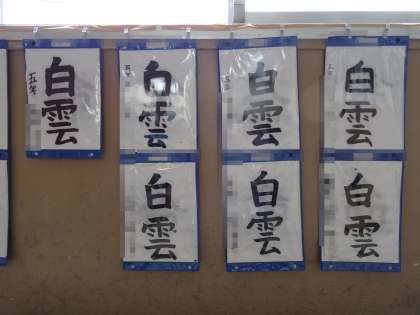 白雲
五年
白雲
白雲
白雲
白雲
白雲
白雲